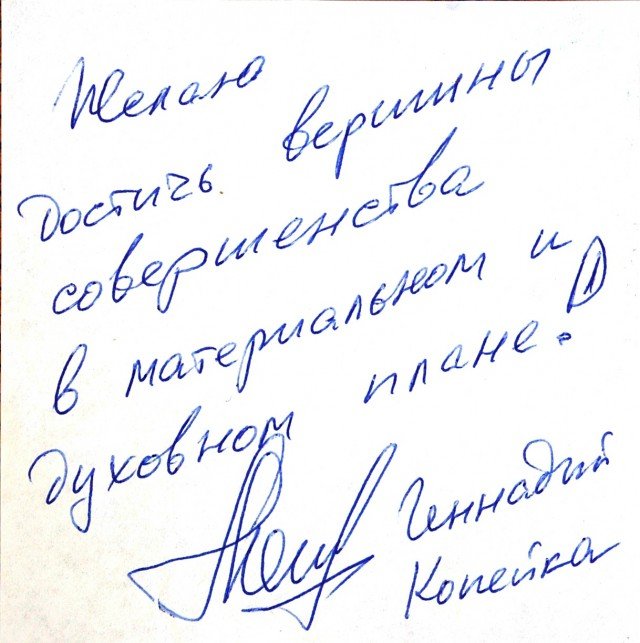 Желаю
достичь вершины
совершенства
в материальном и
духовном плане!
Геннадий
Копейка